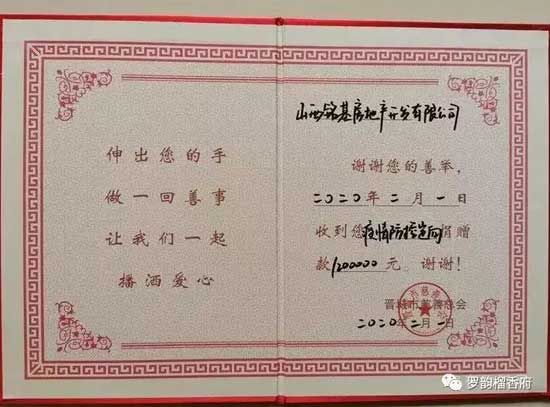 伸出您的手
做一回善事
让我们一起
播洒爱心
山西铭基房地产开发有限公司
谢谢您的善举，
二〇二〇年二月一日
收到您疫情防控定向捐赠
款1200000元。谢谢！
晋城市慈善总会
二〇二〇年二月一日
罗韵榴香府